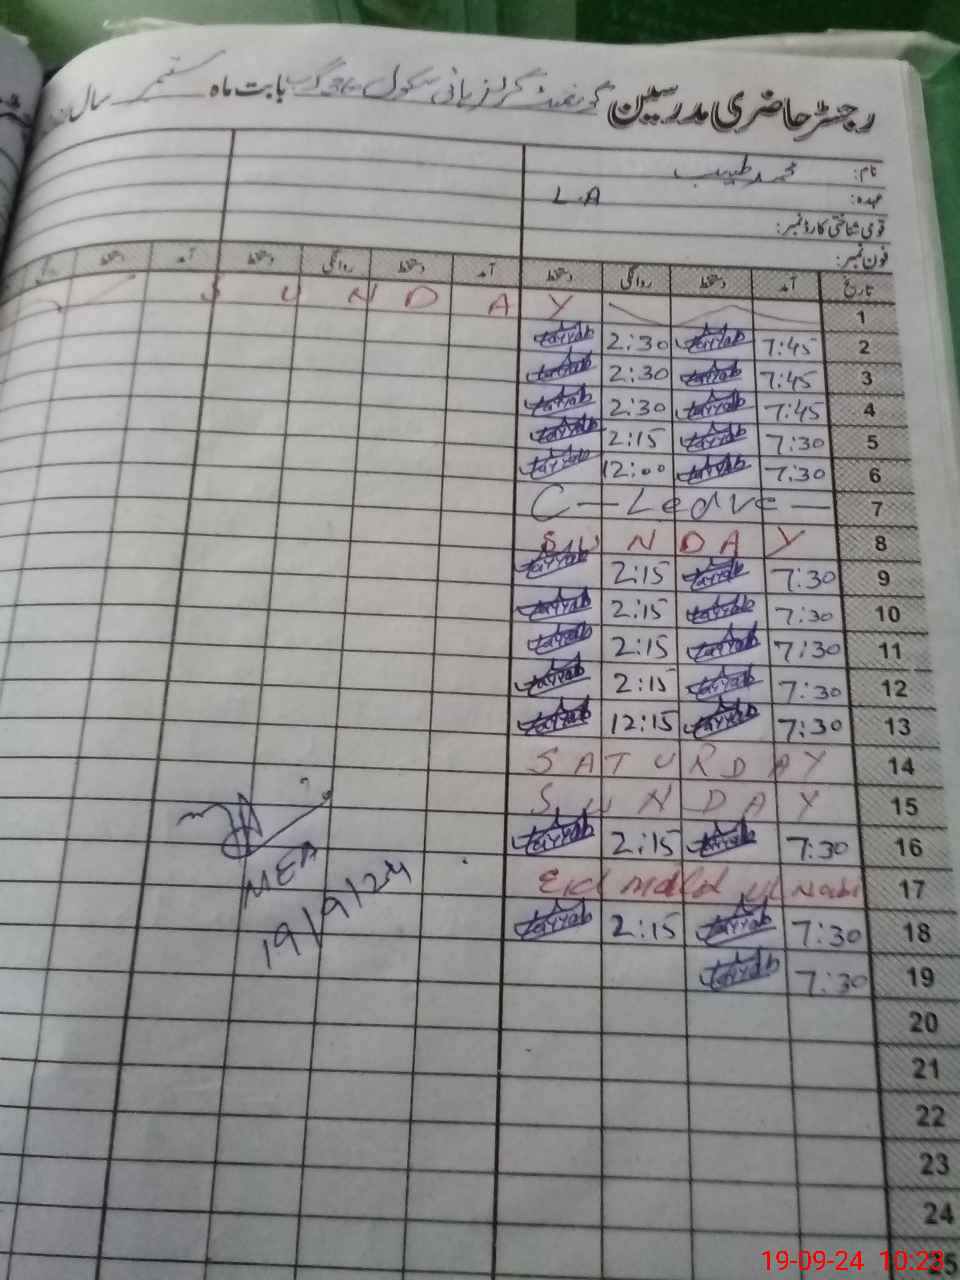 رجسٹر حاضری مدرسین گورنمنٹ گرلز ہائی سکول گ ب بابت ماہ ستمبر سال
نام: محمد طیب
عہدہ: L.A
قومی شناختی کارڈ نمبر:
فون نمبر:
تاریخ آمد دستخط روانگی دستخط آمد دستخط روانگی دستخط آمد دستخط روانگی
1 S U N D A Y
2 7:45 Tayyab 2:30 Tayyab
3 7:45 Tayyab 2:30 Tayyab
4 7:45 Tayyab 2:30 Tayyab
5 7:30 Tayyab 2:15 Tayyab
6 7:30 Tayyab 12:00 Tayyab
7 C - Leave -
8 S U N D A Y
9 7:30 Tayyab 2:15 Tayyab
10 7:30 Tayyab 2:15 Tayyab
11 7:30 Tayyab 2:15 Tayyab
12 7:30 Tayyab 2:15 Tayyab
13 7:30 Tayyab 12:15 Tayyab
14 S A T U R D A Y
15 S U N D A Y
16 7:30 Tayyab 2:15 Tayyab
17 Eid milad ul Nabi
18 7:30 Tayyab 2:15 Tayyab
19 7:30 Tayyab
20
21
22
23
24
25
MEA
19/9/24
19-09-24 10:23